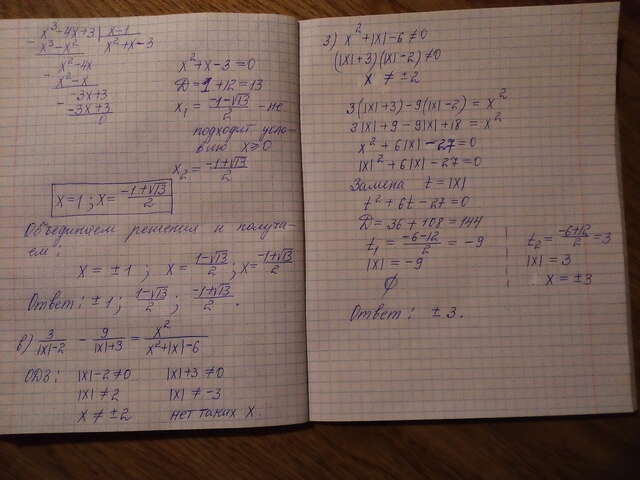 x³-4x+3 | x-1
x³-x² | x²+x-3
x²-4x
x²-x
-3x+3
-3x+3
0
x²+x-3=0
D=1+12=13
x₁ = (-1-√13)/2 - не
подходит усло-
вию x⩾0
x₂ = (-1+√13)/2
x=1; x= (-1+√13)/2
Объединяем решения и получа-
ем:
x = ±1 ; x = (1-√13)/2 ; x= (-1+√13)/2
Ответ: ±1; (1-√13)/2 ; (-1+√13)/2 .
в) 3/(|x|-2) - 9/(|x|+3) = x²/(x²+|x|-6)
ОДЗ: |x|-2≠0 |x|+3≠0
|x|≠2 |x|≠-3
x≠±2 нет таких x.
3) x²+|x|-6≠0
(|x|+3)(|x|-2)≠0
x ≠ ±2
3(|x|+3)-9(|x|-2) = x²
3|x|+9-9|x|+18 = x²
x²+6|x|-27=0
|x|²+6|x|-27=0
Замена t=|x|
t²+6t-27=0
D=36+108=144
t₁ = (-6-12)/2 = -9 t₂ = (-6+12)/2 = 3
|x|=-9 |x|=3
∅ x=±3
Ответ: ±3.